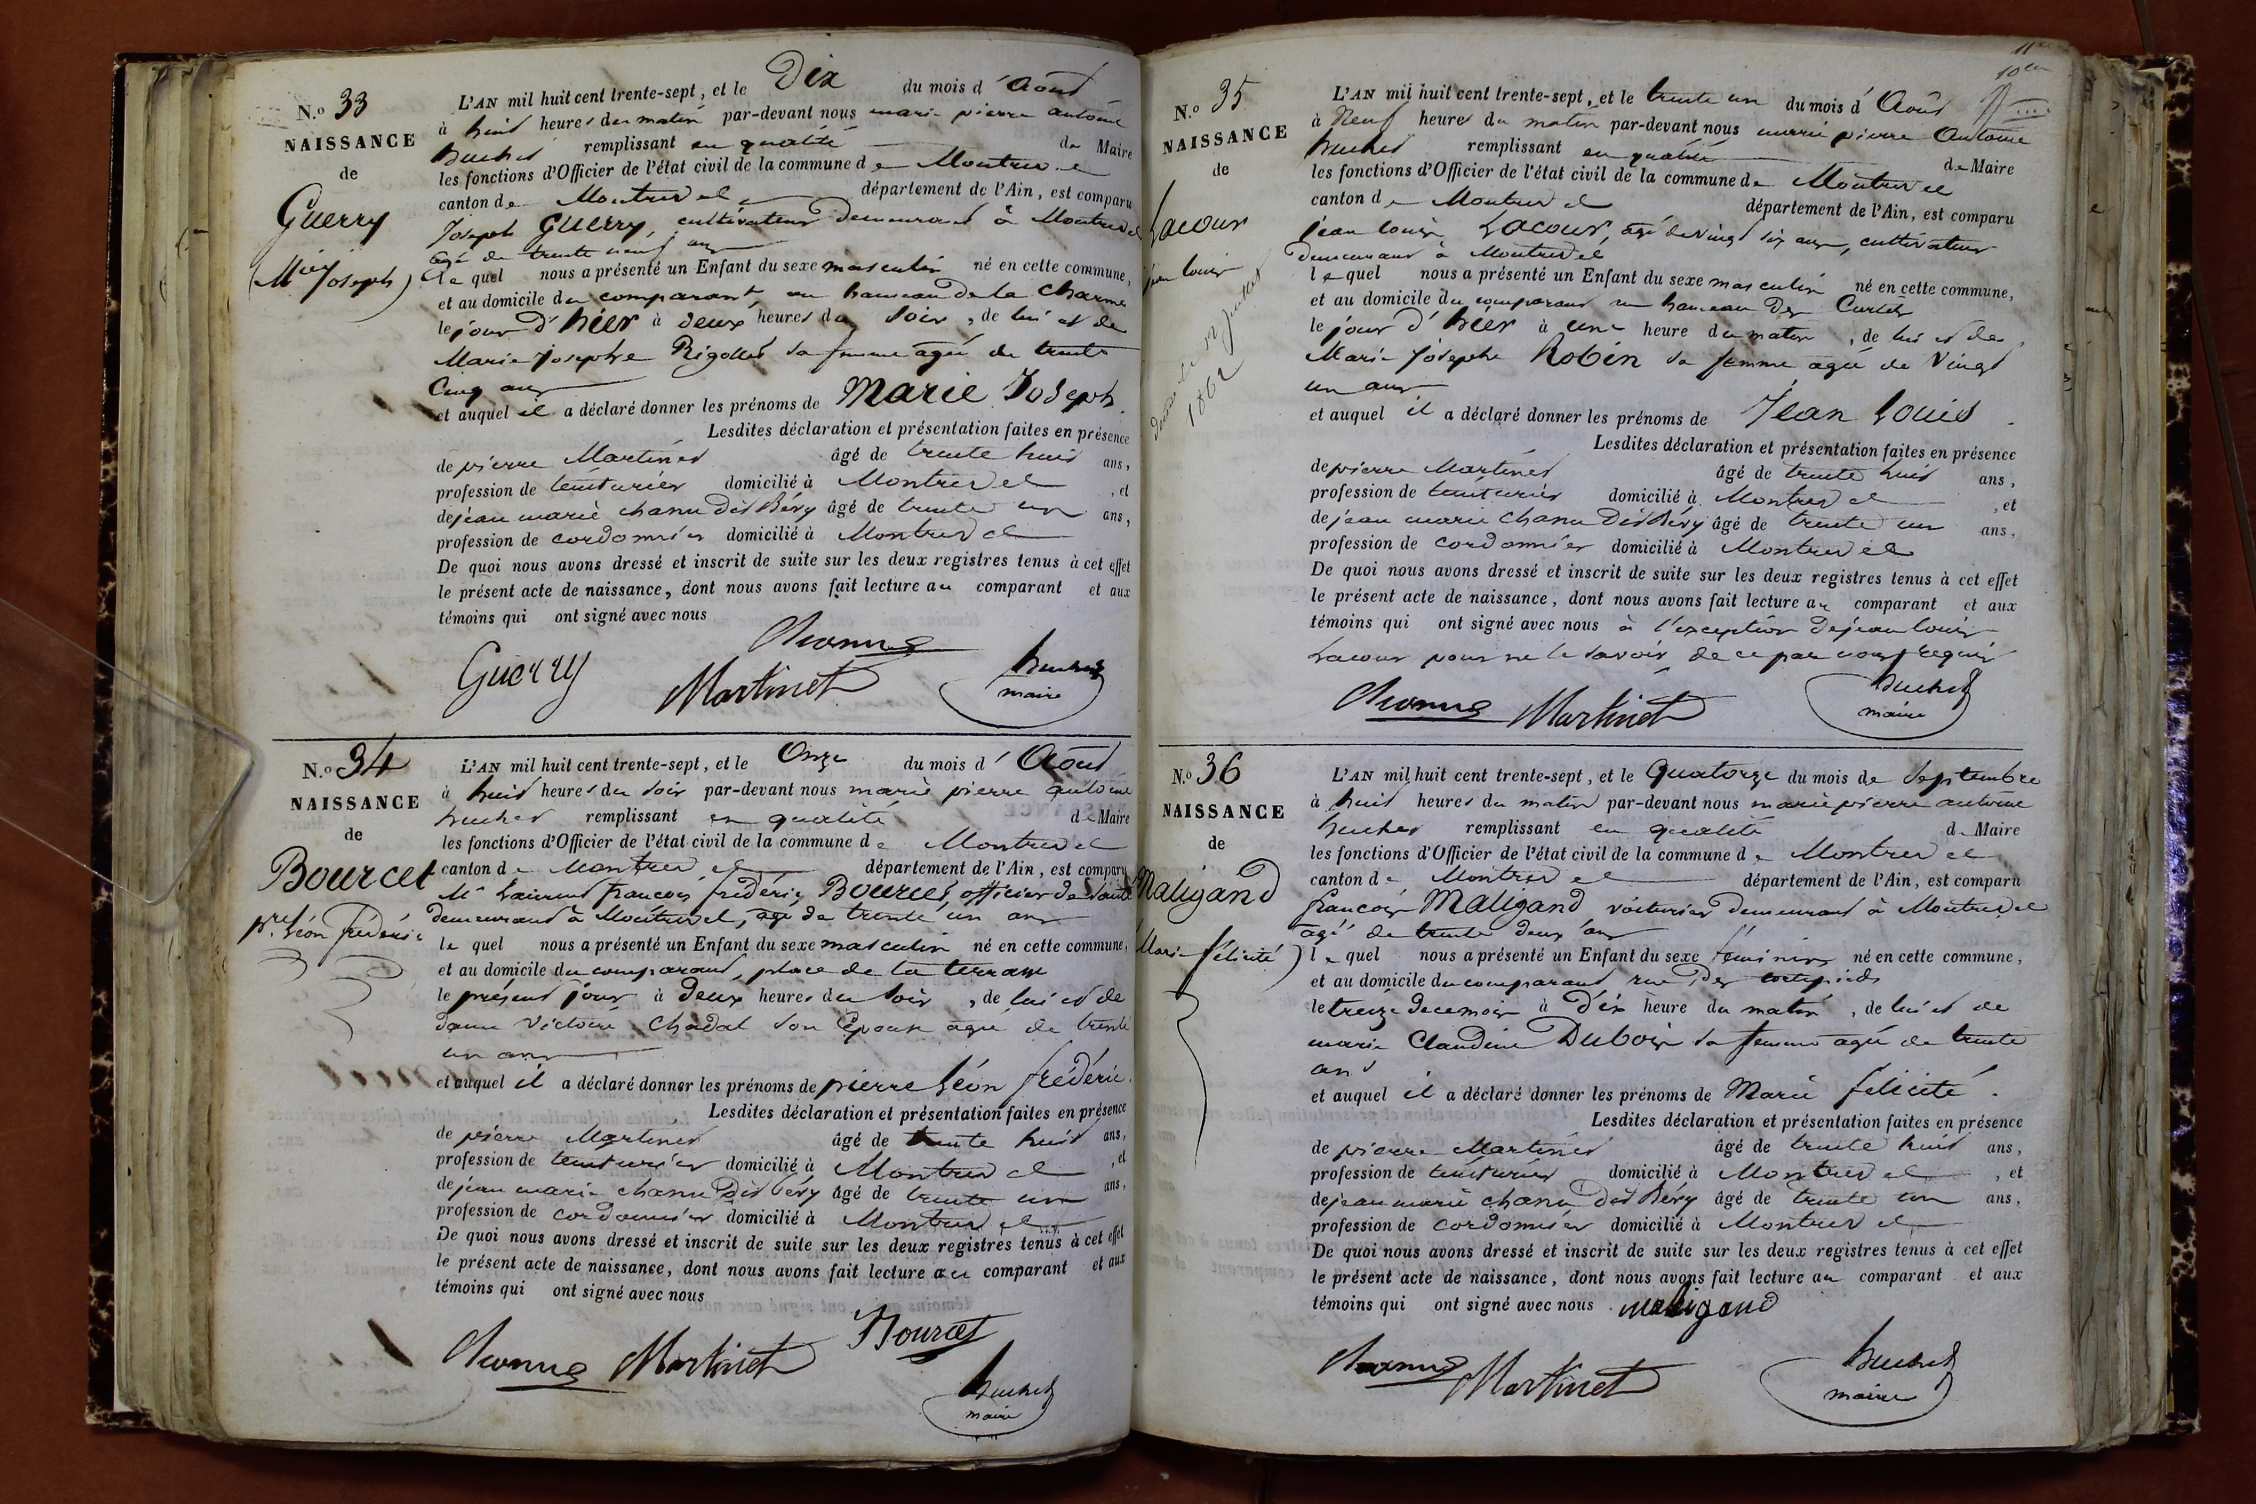 N.o 33
NAISSANCE
de
Guerry
(Mie Joseph)
L'AN mil huit cent trente-sept, et le Dix du mois d'Août
à huit heures du matin par-devant nous marie pierre antoine
huchet remplissant en qualité de Maire
les fonctions d'Officier de l'état civil de la commune de Montrevel
canton de Montrevel département de l'Ain, est comparu
Joseph Guerry, cultivateur demeurant à Montrevel
agé de trente neuf ans
le quel nous a présenté un Enfant du sexe masculin né en cette commune,
et au domicile du comparant, au hameau de la Charme
le jour d'hier à deux heures du soir, de lui et de
Marie Josephe Rigollet sa femme agée de trente
Cinq ans
et auquel il a déclaré donner les prénoms de Marie Joseph.
Lesdites déclaration et présentation faites en présence
de pierre Martinet âgé de trente huit ans,
profession de teinturier domicilié à Montrevel, et
de jean marie chanu dit Béry âgé de trente un ans,
profession de cordonnier domicilié à Montrevel
De quoi nous avons dressé et inscrit de suite sur les deux registres tenus à cet effet
le présent acte de naissance, dont nous avons fait lecture au comparant et aux
témoins qui ont signé avec nous
Chanus
Guerry Martinet huchet
maire
N.o 34
NAISSANCE
de
Bourcet
prre Léon frédéric
L'AN mil huit cent trente-sept, et le Onze du mois d'Août
à huit heures du soir par-devant nous marie pierre antoine
huchet remplissant en qualité de Maire
les fonctions d'Officier de l'état civil de la commune de Montrevel
canton de Montrevel département de l'Ain, est comparu
Mr Laurent françois frédéric Bourcet, officier de santé
demeurant à Montrevel, agé de trente un ans
le quel nous a présenté un Enfant du sexe masculin né en cette commune,
et au domicile du comparant, place de la terrasse
le présent jour à deux heures du soir, de lui et de
dame Victoire Chadal son Epouse agée de trente
un ans
et auquel il a déclaré donner les prénoms de pierre Léon frédéric.
Lesdites déclaration et présentation faites en présence
de pierre Martinet âgé de trente huit ans,
profession de teinturier domicilié à Montrevel, et
de jean marie chanu dit béry âgé de trente un ans,
profession de cordonnier domicilié à Montrevel
De quoi nous avons dressé et inscrit de suite sur les deux registres tenus à cet effet
le présent acte de naissance, dont nous avons fait lecture au comparant et aux
témoins qui ont signé avec nous
Bourcet
Chanus Martinet huchet
maire
10em
N.o 35
NAISSANCE
de
Lacour
jean louis
1862
L'AN mil huit cent trente-sept, et le trente un du mois d'Août
à Neuf heures du matin par-devant nous marie pierre Antoine
huchet remplissant en qualité de Maire
les fonctions d'Officier de l'état civil de la commune de Montrevel
canton de Montrevel département de l'Ain, est comparu
jean louis Lacour, agé de vingt six ans, cultivateur
demeurant à Montrevel
le quel nous a présenté un Enfant du sexe masculin né en cette commune,
et au domicile du comparant au hameau des Curtes
le jour d'hier à une heure du matin, de lui et de
Marie Josephe Robin sa femme agée de Vingt
un ans
et auquel il a déclaré donner les prénoms de Jean Louis.
Lesdites déclaration et présentation faites en présence
de pierre Martinet âgé de trente huit ans,
profession de teinturier domicilié à Montrevel, et
de jean marie chanu dit Béry âgé de trente un ans,
profession de cordonnier domicilié à Montrevel
De quoi nous avons dressé et inscrit de suite sur les deux registres tenus à cet effet
le présent acte de naissance, dont nous avons fait lecture au comparant et aux
témoins qui ont signé avec nous à l'exception de jean louis
Lacour pour ne le savoir de ce par nous requis
Chanus Martinet huchet
maire
N.o 36
NAISSANCE
de
Maligand
Marie félicité)
L'AN mil huit cent trente-sept, et le Quatorze du mois de Septembre
à huit heures du matin par-devant nous marie pierre antoine
huchet remplissant en qualité de Maire
les fonctions d'Officier de l'état civil de la commune de Montrevel
canton de Montrevel département de l'Ain, est comparu
françois Maligand voiturier demeurant à Montrevel
agé de trente deux ans
le quel nous a présenté un Enfant du sexe féminin né en cette commune,
et au domicile du comparant, rue des
le treize de ce mois à Dix heure du matin, de lui et de
marie Claudine Dubois sa femme agée de trente
ans
et auquel il a déclaré donner les prénoms de Marie félicité.
Lesdites déclaration et présentation faites en présence
de pierre Martinet âgé de trente huit ans,
profession de teinturier domicilié à Montrevel, et
de jean marie chanu dit Béry âgé de trente un ans,
profession de cordonnier domicilié à Montrevel
De quoi nous avons dressé et inscrit de suite sur les deux registres tenus à cet effet
le présent acte de naissance, dont nous avons fait lecture au comparant et aux
témoins qui ont signé avec nous. maligand
Chanus Martinet huchet
maire